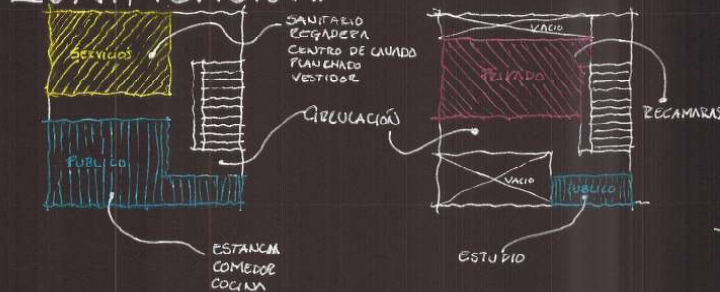 SERVICIOS
SANITARIO
REGADERA
CENTRO DE LAVADO
PLANCHADO
VESTIDOR
CIRCULACIÓN
PUBLICO
ESTANCIA
COMEDOR
COCINA
VACIO
PRIVADO
RECAMARAS
VACIO
PUBLICO
ESTUDIO